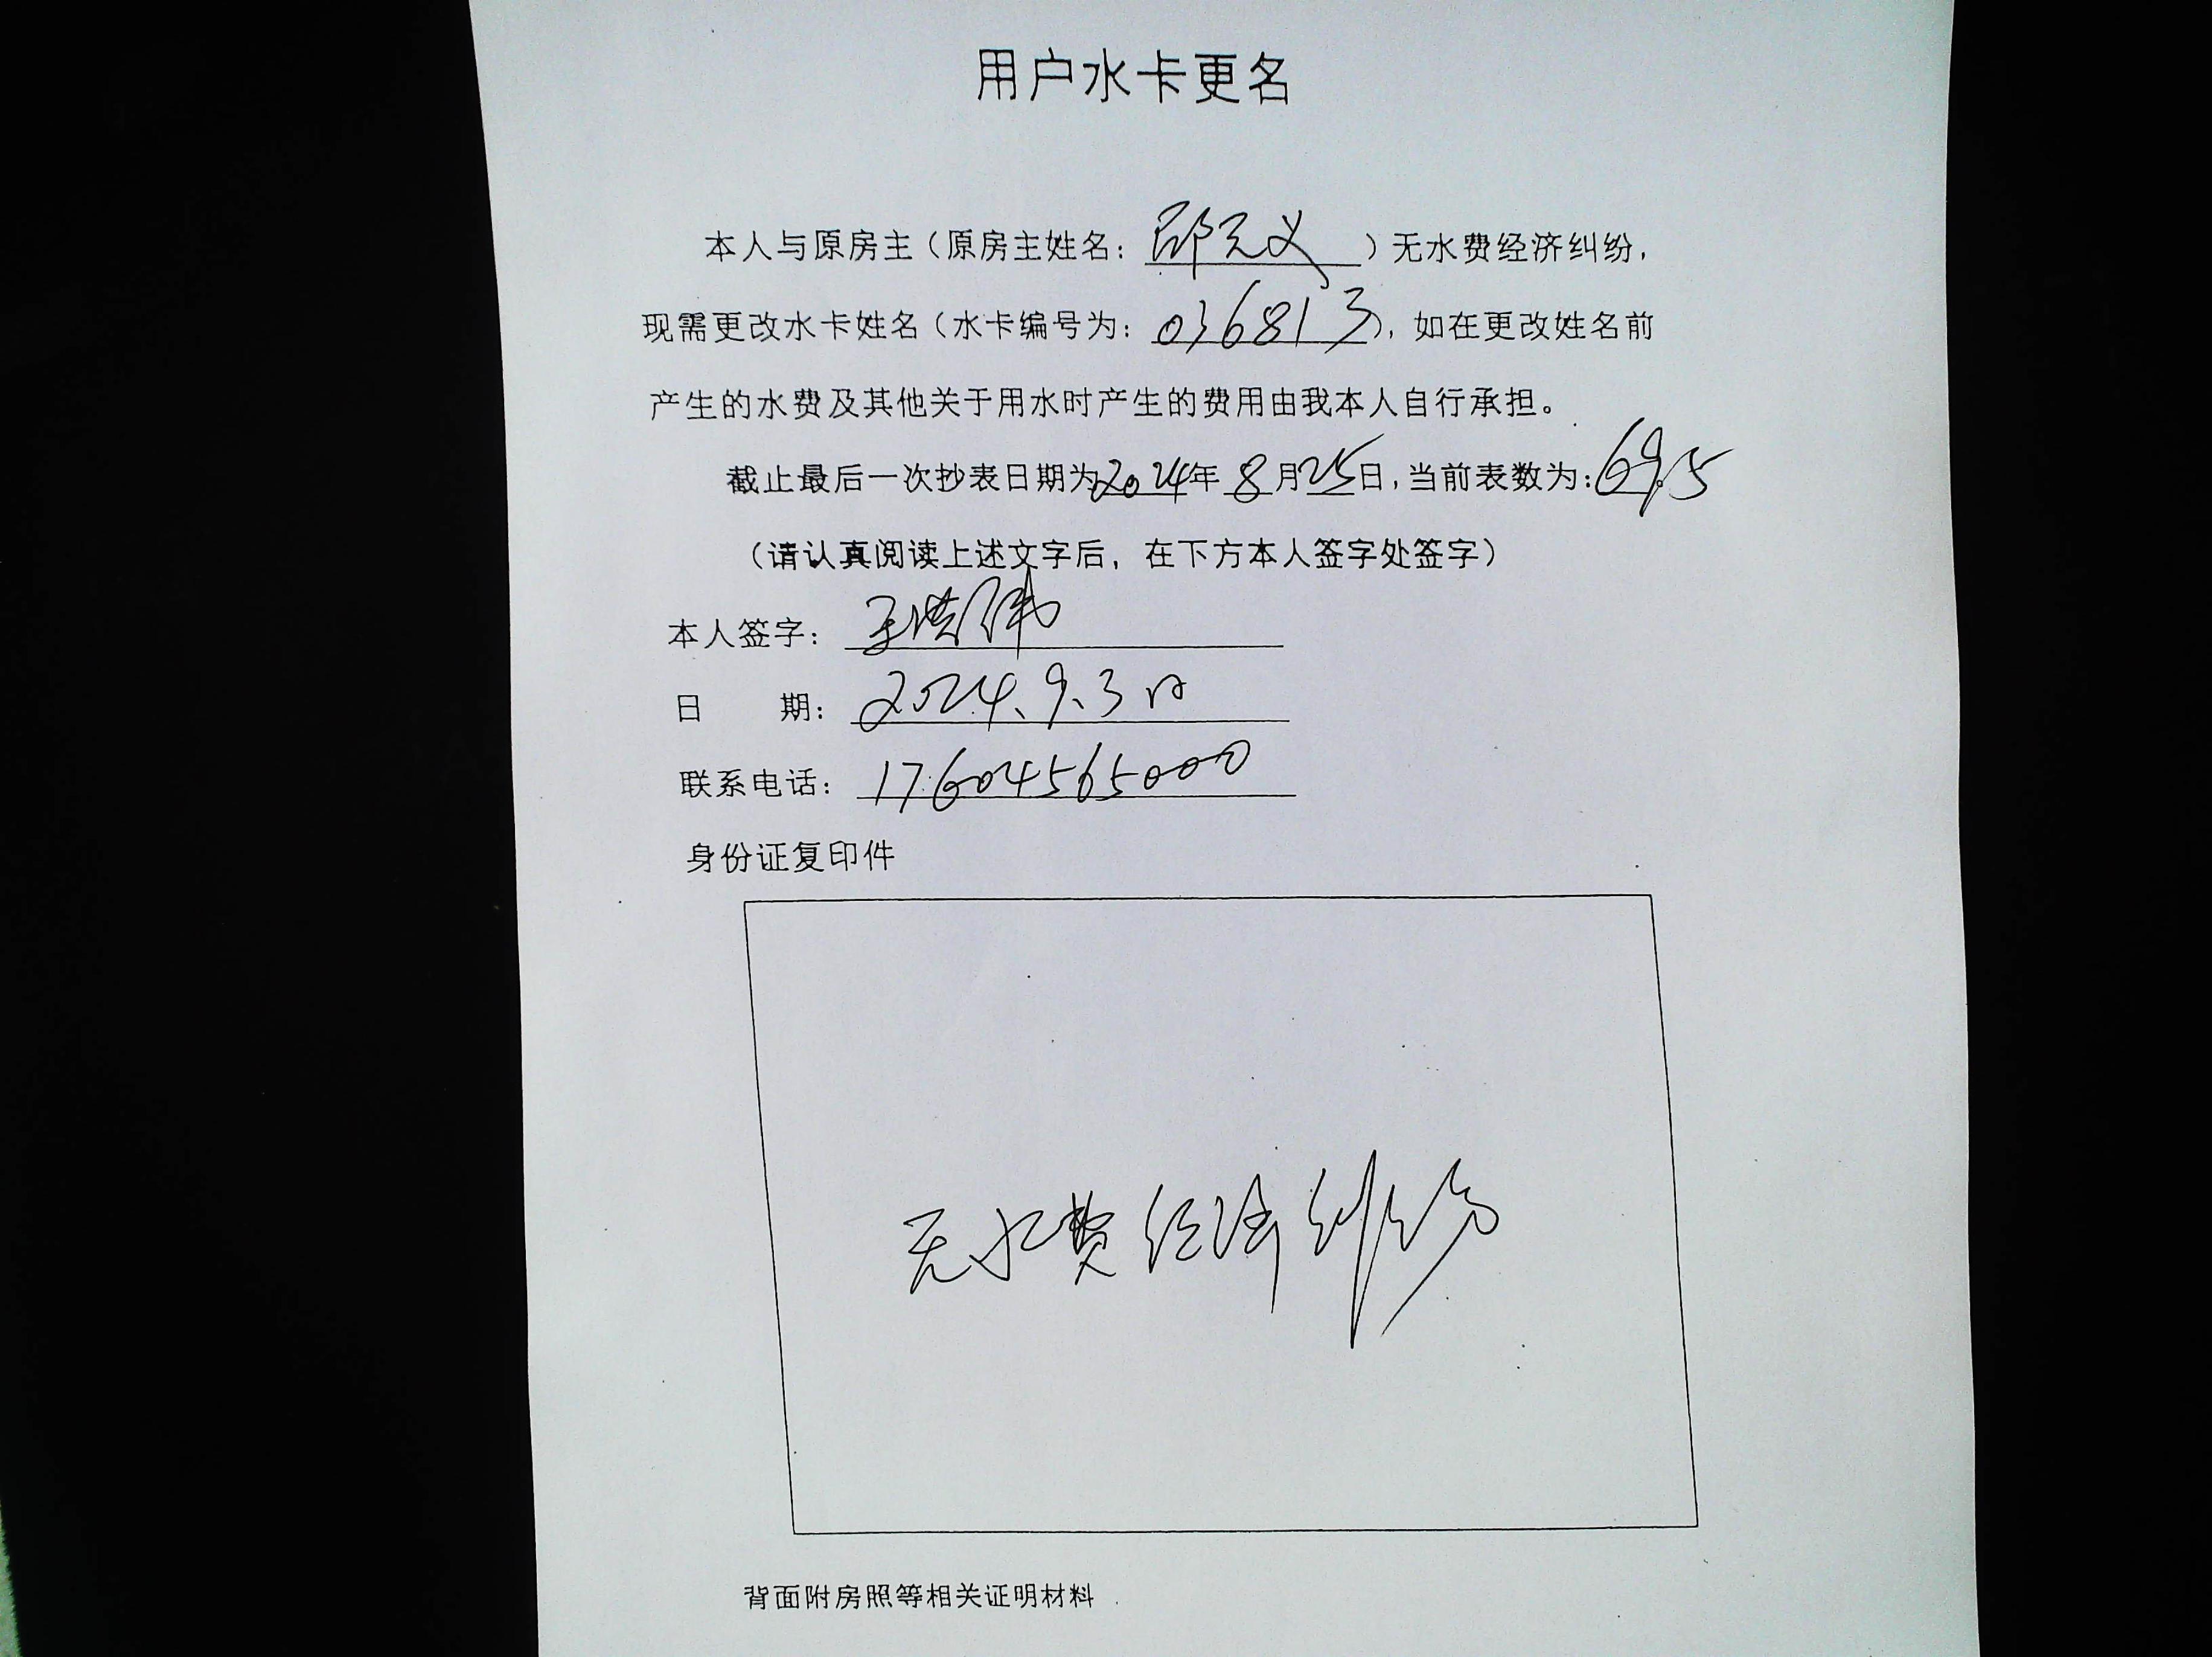 用户水卡更名
本人与原房主（原房主姓名：邵元义）无水费经济纠纷，
现需更改水卡姓名（水卡编号为：036813），如在更改姓名前
产生的水费及其他关于用水时产生的费用由我本人自行承担。
截止最后一次抄表日期为2024年8月25日，当前表数为：69.5
（请认真阅读上述文字后，在下方本人签字处签字）
本人签字：王洪伟
日 期：2024、9、3日
联系电话：17604565000
身份证复印件
无水费经济纠纷
背面附房照等相关证明材料